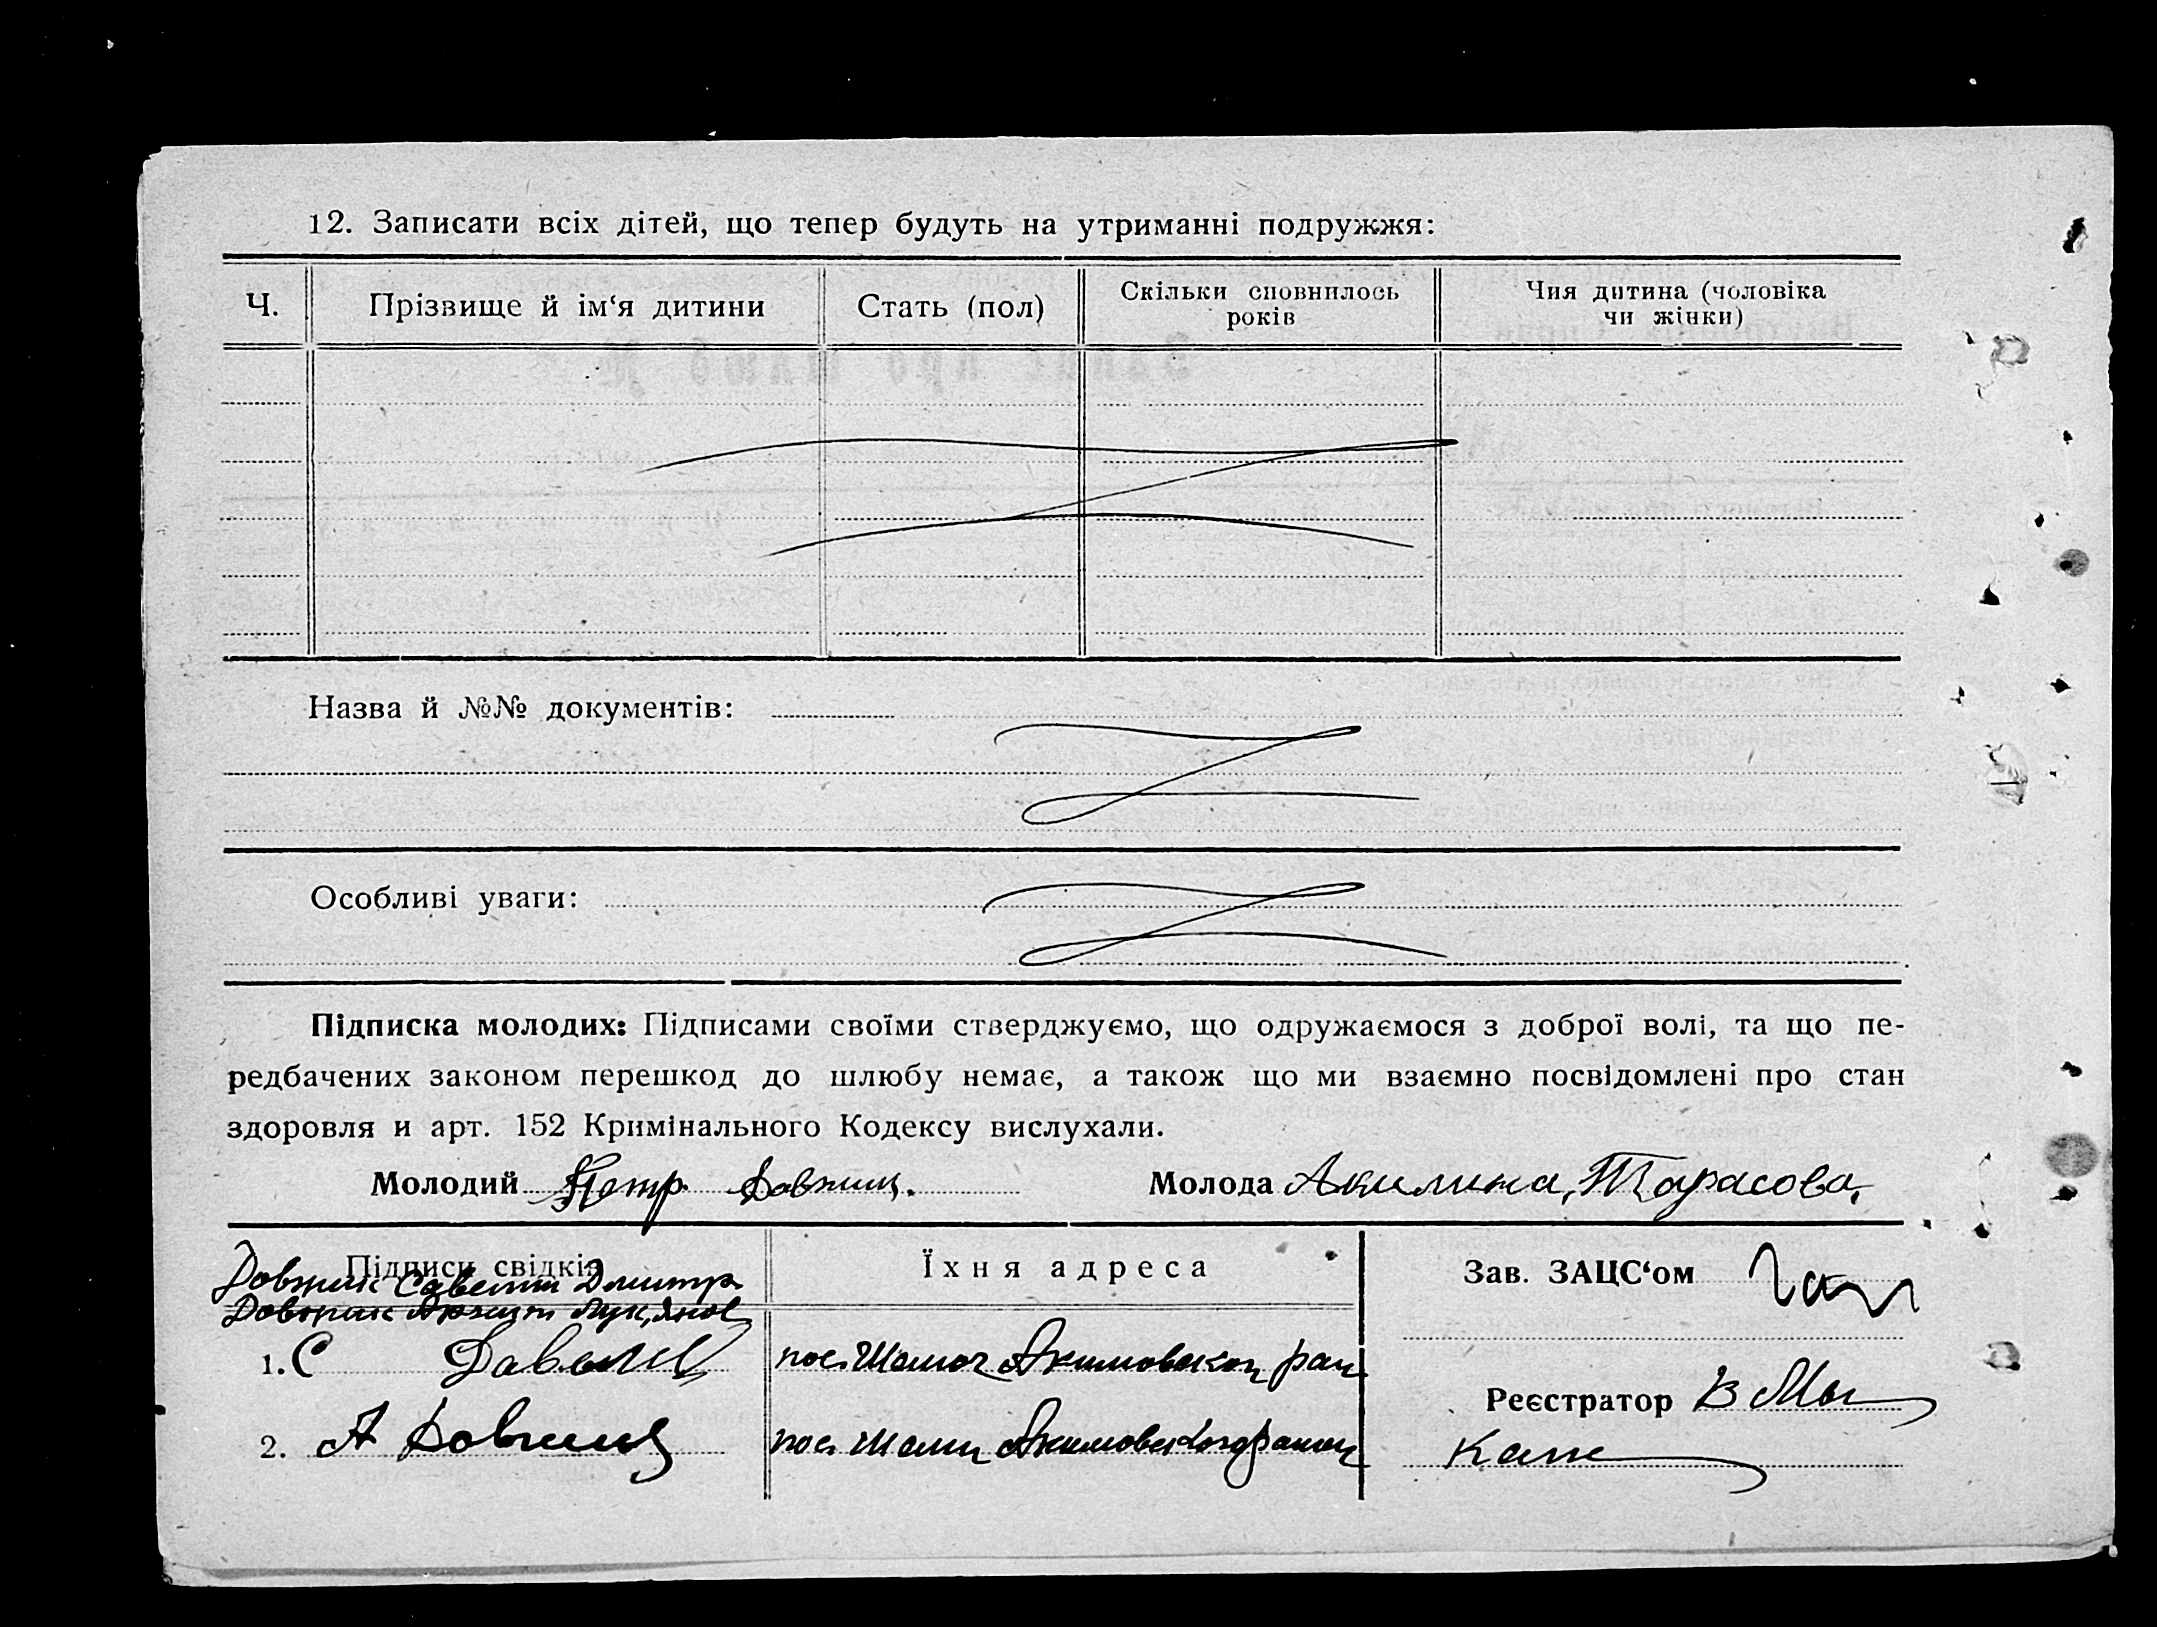 12. Записати всіх дітей, що тепер будуть на утриманні подружжя:
Ч. Прізвище й ім‘я дитини Стать (пол) Скільки сповнилось років Чия дитина (чоловіка чи жінки)
Назва й №№ документів:
Особливі уваги:
Підписка молодих: Підписами своїми стверджуємо, що одружаємося з доброї волі, та що пе-
редбачених законом перешкод до шлюбу немає, а також що ми взаємно посвідомлені про стан
здоровля и арт. 152 Кримінального Кодексу вислухали.
Молодий Петр Довжик. Молода Акилина Тарасова
Підписи свідків Їхня адреса Зав. ЗАЦС‘ом
Довжик Савелий Дмитр
Довжик
1. С пос. Акимовской рай
Реєстратор
2. А Довжик пос.